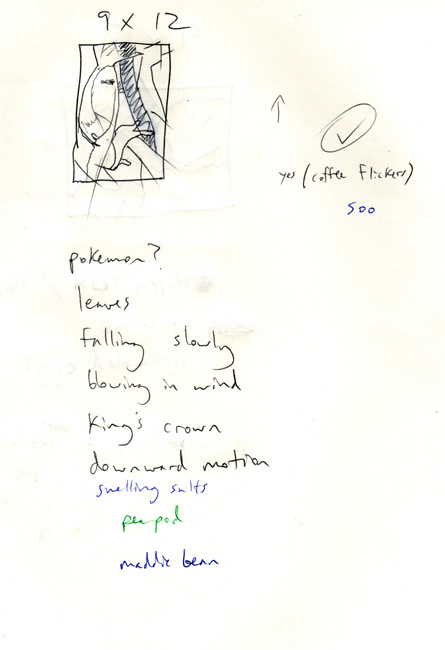 9 x 12
yes (coffee flickers)
500
pokemon?
leaves
falling slowly
blowing in wind
King's crown
downward motion
smelling salts
pea pod
maddie bean